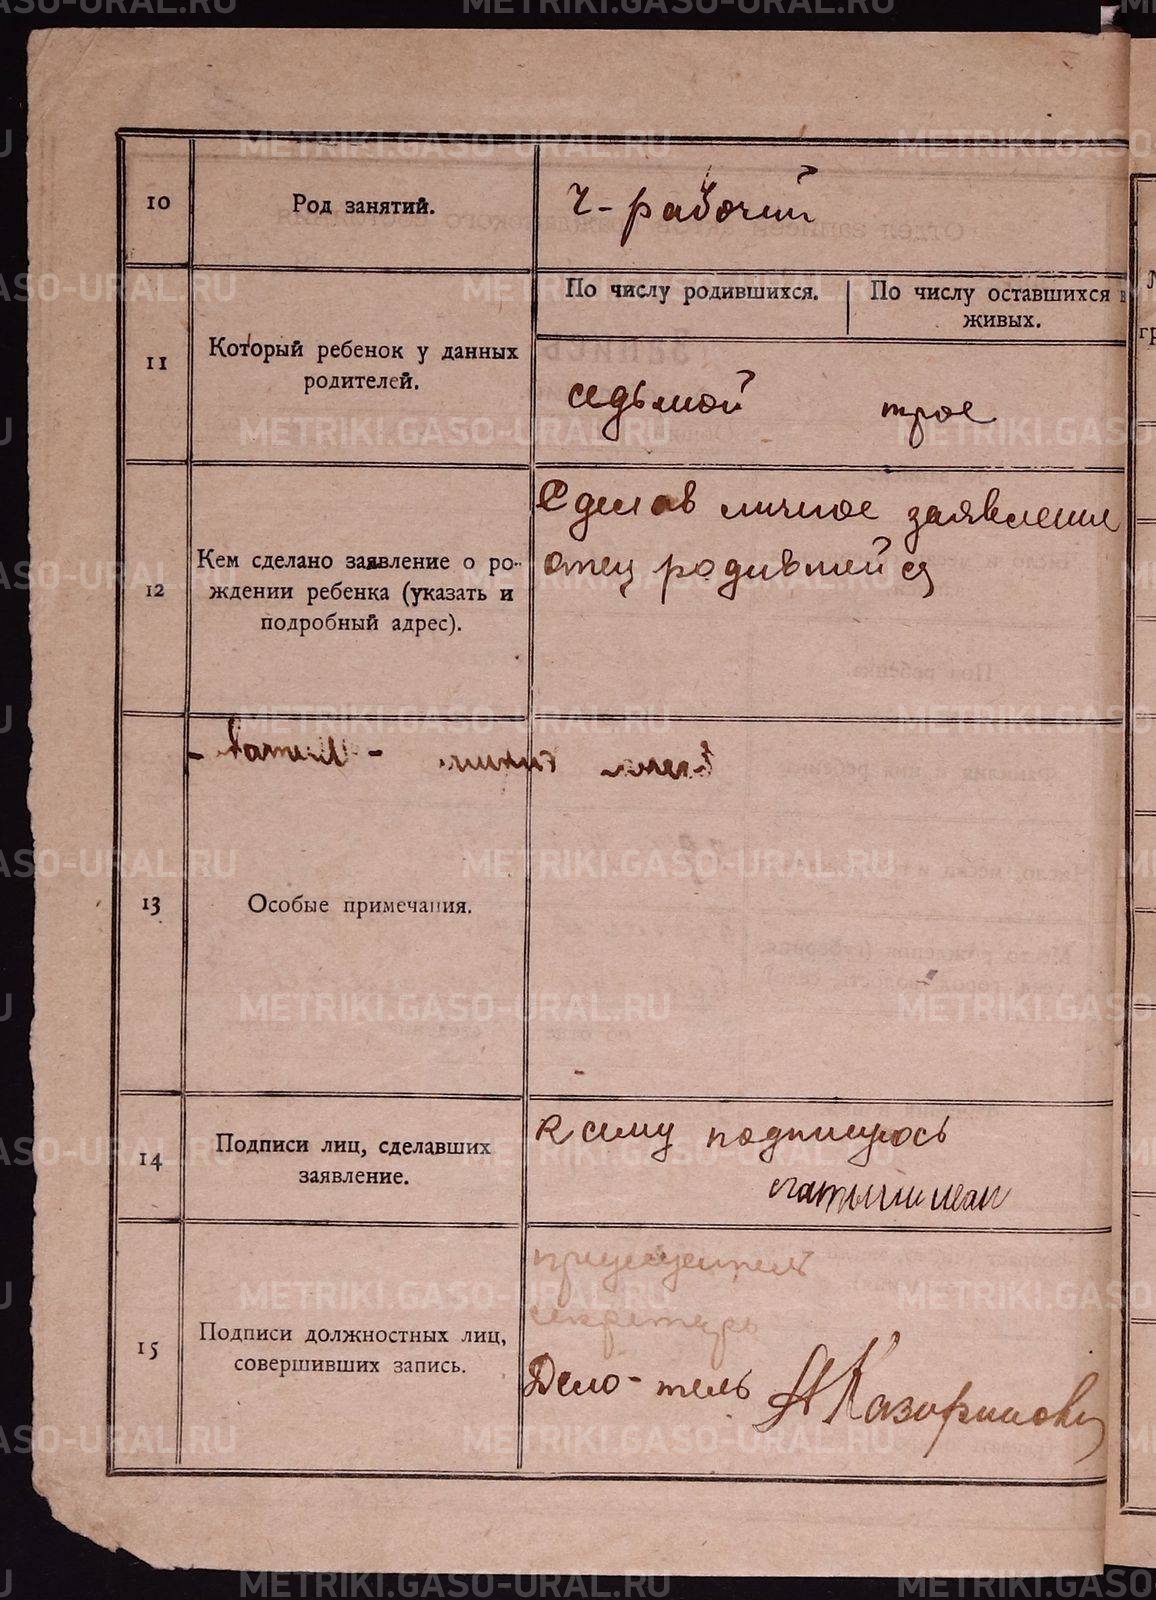 10
Род занятий.
Ч-рабочий
11
Который ребенок у данных
родителей.
По числу родившихся.
По числу оставшихся в
живых.
седьмой
трое
12
Кем сделано заявление о ро-
ждении ребенка (указать и
подробный адрес).
Сделав личное заявление
отец родившейся
13
Особые примечания.
14
Подписи лиц, сделавших
заявление.
К сему подпишусь
15
Подписи должностных лиц,
совершивших запись.
председатель
секретарь
Дело-тель
METRIKI.GASO-URAL.RU